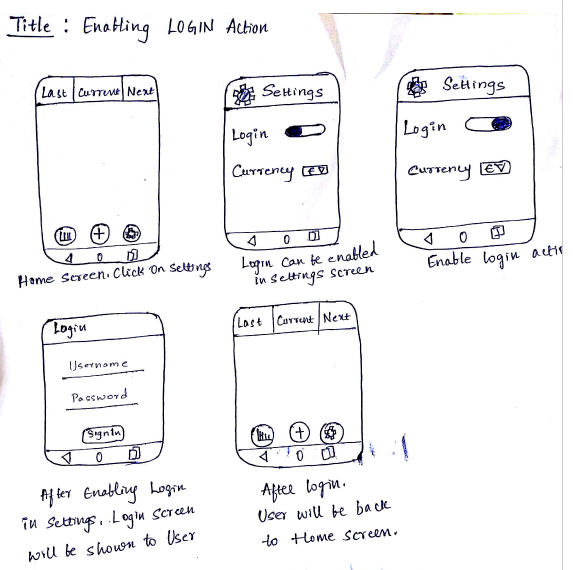 Title : Enabling LOGIN Action
Last Current Next
Home Screen. Click On Settings
Settings
Login
Currency €
Login Can be enabled
in Settings screen
Settings
Login
Currency €
Enable login acti
Login
Username
Password
Signin
After Enabling Login
in Settings. Login Screen
will be shown to User
Last Current Next
After login.
User will be back
to Home Screen.